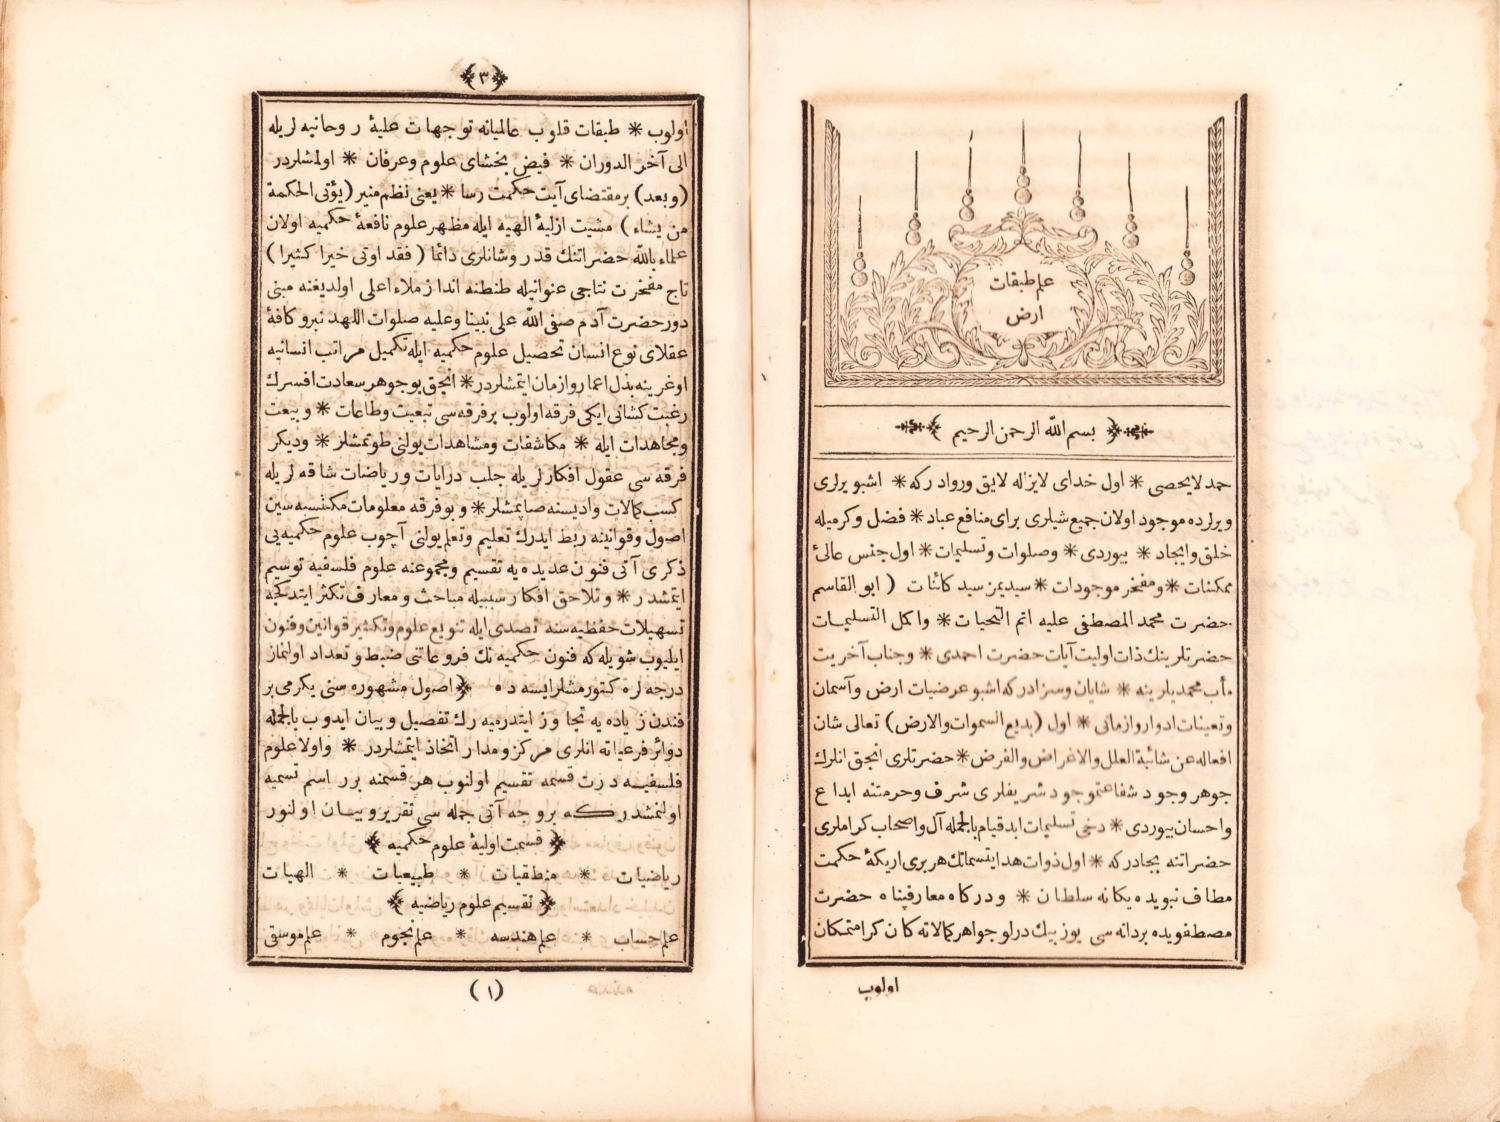 علم طبقات
ارض
بسم الله الرحمن الرحيم
حمد لايحصى * اول خداى لايزاله لايق ورواد ركه * اشبو يرلرى
ويرلرده موجود اولان جميع شيلرى براى منافع عباد * فضل وكرميله
خلق وايجاد * بيوردى * وصلوات وتسليمات * اول جنس عالئ
ممكنات * ومفخر موجودات * سيديمز سيد كائنات ( ابو القاسم
حضرت محمد المصطفى عليه اتم التحيات * واكمل التسليمات
حضرتلرينك ذات اوليت آيات حضرت احمدى * وجناب آخريت
مأب محمديلرينه * شايان وسزادركه اشبو عرضيات ارض وآسمان
وتعينات ادوار وازمانى * اول (بديع السموات والارض) تعالى شان
افعاله عن شائبة العلل والاغراض والغرض * حضرتلرى انجق انلرك
جوهر وجود شفاعتموجود شريفلرى شرف وحرمتنه ابداع
واحسان بيوردى * دخى تسليمات ابد قيام بالجمله آل واصحاب كراملرى
حضراتنه بجادركه * اول ذوات هدايتسماتك هربرى اريكۀ حكمت
مطاف نبويده يكانه سلطان * ودركاه معارفپناه حضرت
مصطفويده بردانه سى يوز بيك درلو جواهر كمالاته كان كرامتمكان
اولوب
٣
اولوب * طبقات قلوب عالميانه توجهات عليۀ روحانيه لريله
الى آخر الدوران * فيض بخشاى علوم وعرفان * اولمشلردر
(وبعد) برمقتضاى آيت حكمت رسا * يعنى نظم منير (يؤتى الحكمة
من يشاء) مشيت ازليۀ الهيه ايله مظهر علوم نافعۀ حكميه اولان
علماء بالله حضراتنك قدر وشانلرى دائما ( فقد اوتى خيرا كثيرا )
تاج مفخرت نتاجى عنوانيله طنطنه انداز ملاء اعلى اولديغنه مبنى
دور حضرت آدم صفى الله على نبينا وعليه صلوات اللهدنبرو كافۀ
عقلاى نوع انسان تحصيل علوم حكميه ايله تكميل مراتب انسانيه
اوغرينه بذل اعمار وازمان ايتمشلردر * انجق بوجوهر سعادت افسرك
رغبت كشانى ايكى فرقه اولوب برفرقه سى تبعيت وطاعات * وبيعت
ومجاهدات ايله * مكاشفات ومشاهدات يولنى طوتمشلر * وديكر
فرقه سى عقول افكارلريله جلب درايات ورياضات شاقه لريله
كسب كمالات واديسنه صاپمشلر * وبوفرقه معلومات مكتسبه سين
اصول وقوانينه ربط ايدرك تعليم وتعلم يولنى آچوب علوم حكميه يى
ذكرى آتى فنون عديده يه تقسيم ومجموعنه علوم فلسفيه توسيم
ايتمشدر * وتلاحق افكار سببيله مباحث ومعارف تكثر ايتدكجه
تسهيلات حفظيه سنه تصدى ايله تنويع علوم وتكثير قوانين وفنون
ايليوب شويله كه فنون حكميه نك فروعاتنى ضبط وتعداد اولنماز
درجه لره كتورمشلرايسه ده اصول مشهوره سنى يكرمى بر
فندن زياده يه تجاوز ايتدرميه رك تفصيل وبيان ايدوب بالجمله
دوائر فرعياته انلرى مركز ومدار اتخاذ ايتمشلردر * واولا علوم
فلسفيه درت قسمه تقسيم اولنوب هر قسمنه برر اسم تسميه
اولنمشدركه بروجه آتى جمله سى تقرير وبيان اولنور
قسمت اوليۀ علوم حكميه
رياضيات * منطقيات * طبيعيات * الهيات
تقسيم علوم رياضيه
علم حساب * علم هندسه * علم نجوم * علم موسقى
(١)